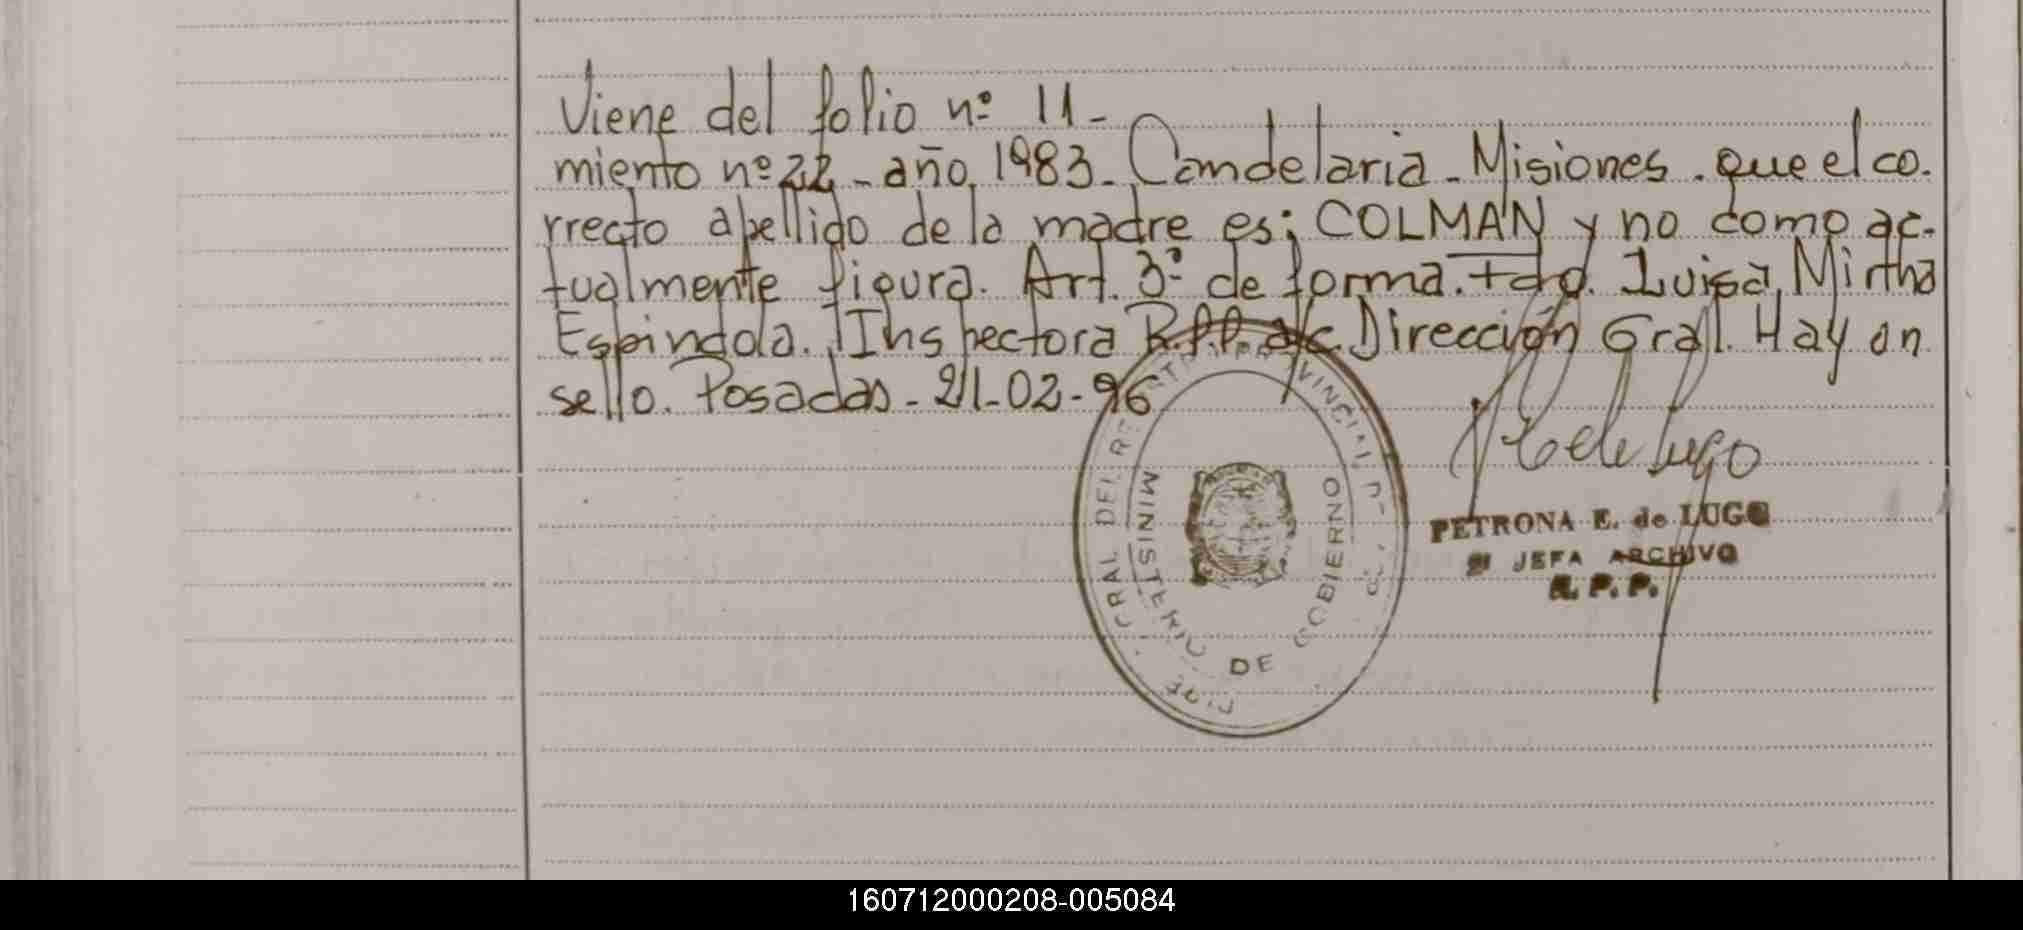 Viene del folio nº 11-
miento nº 22 - año 1983 - Candelaria - Misiones. que el co-
rrecto apellido de la madre es: COLMAN y no como ac-
tualmente figura. Art. 3º de forma. Fdo. Luisa Mirtha
Espindola. Inspectora R.P.P. a/c. Dirección Gral. Hay un
sello. Posadas - 21-02-96
MINISTERIO DE GOBIERNO
GRAL DEL
PETRONA E. de LUGO
JEFA ARCHIVO
R. P. P.
160712000208-005084